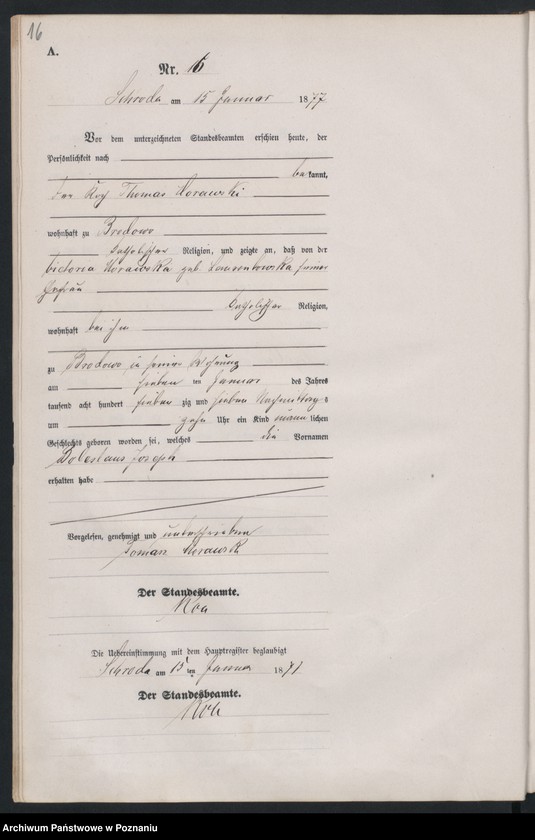 16
A.
Nr. 16
Schroda am 15 Januar 1877
Vor dem unterzeichneten Standesbeamten erschien heute, der
Persönlichkeit nach
bekannt,
der Thomas
wohnhaft zu Brodowo
katholischer Religion, und zeigte an, daß von der
Victoria geb. seiner
Ehefrau
katholischer Religion,
wohnhaft bei ihm
zu Brodowo in seiner Wohnung
am sieben ten Januar des Jahres
tausend acht hundert sieben zig und sieben Nachmittags
um zehn Uhr ein Kind männlichen
Geschlechts geboren worden sei, welches die Vornamen
Boleslaus Joseph
erhalten habe
Vorgelesen, genehmigt und unterschrieben
Der Standesbeamte.
Die Uebereinstimmung mit dem Hauptregister beglaubigt
Schroda am 15 ten Januar 1877
Der Standesbeamte.
Archiwum Państwowe w Poznaniu